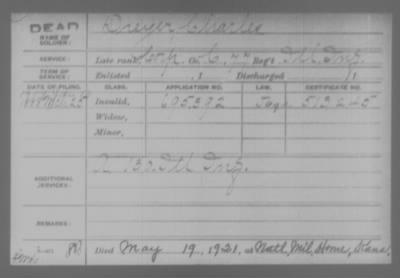 DEAD
NAME OF SOLDIER:
Dreyer Charles
SERVICE:
Late rank, Corp. Co. C, 77 Reg't Ill. Inf.
TERM OF SERVICE:
Enlisted , 1 Discharged , 1
DATE OF FILING. CLASS. APPLICATION NO. LAW. CERTIFICATE NO.
Invalid, 695.292 513.245
Widow,
Minor,
ADDITIONAL SERVICES:
130. Ill Inf.
REMARKS:
Died May 19, 1921, at Natl. Mil. Home, Kans.